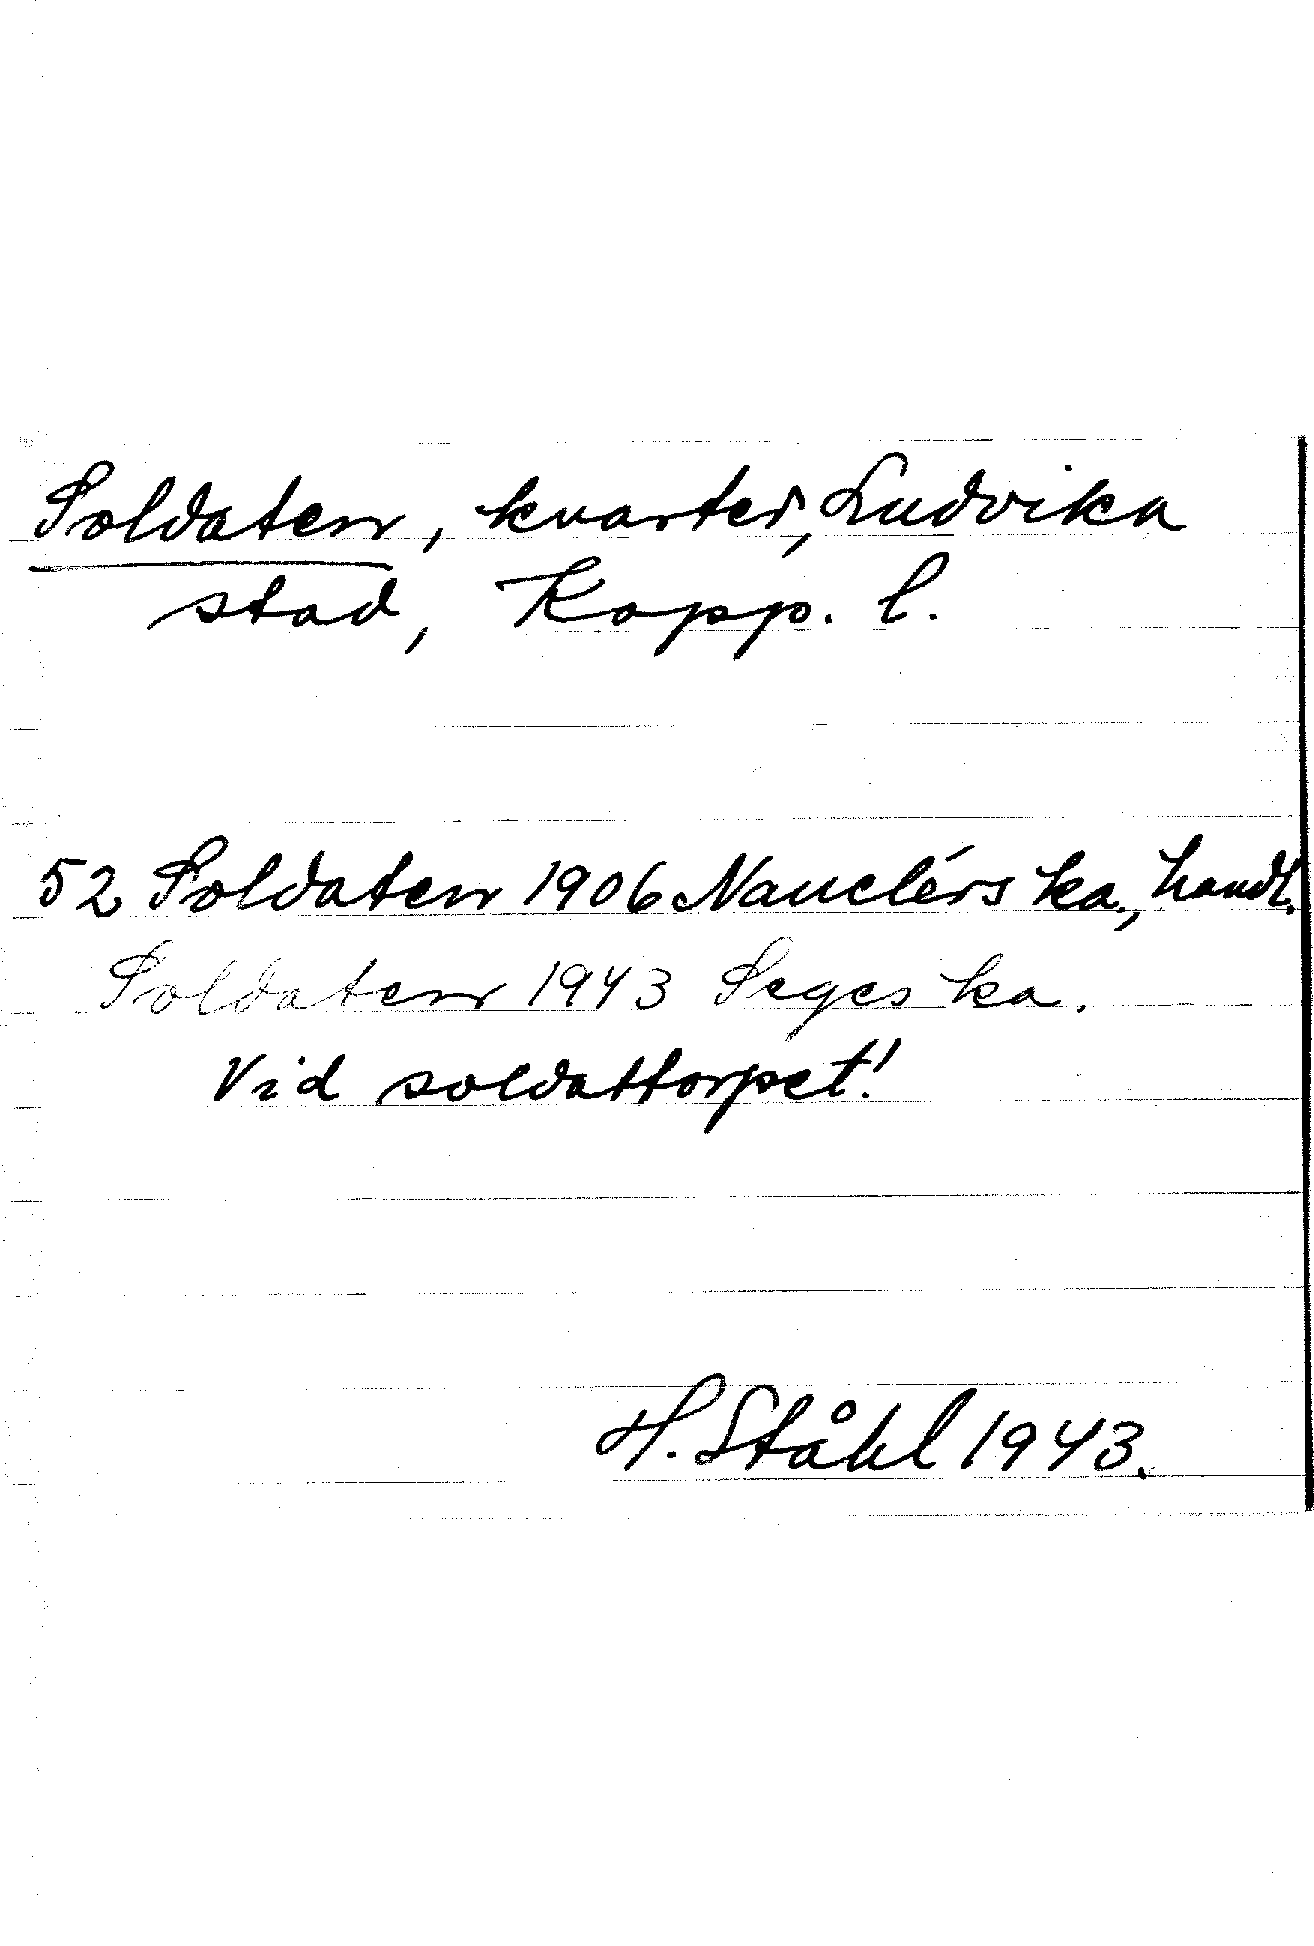 Soldaten, kvarter, Ludvika
stad, Kopp. l.
52 Soldaten 1906 Nauclérs ka., handl.
Soldaten 1943 Seges ka.
Vid soldattorpet!
H. Ståhl 1943.